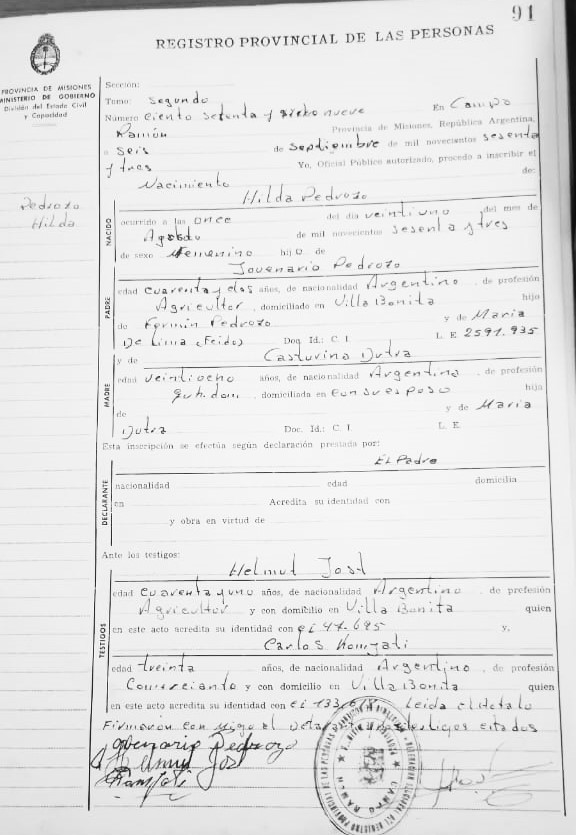 91
REGISTRO PROVINCIAL DE LAS PERSONAS
PROVINCIA DE MISIONES
MINISTERIO DE GOBIERNO
División del Estado Civil
y Capacidad
Pedrozo
Hilda
Sección:
Tomo: Segundo
Número Ciento Setenta y nueve En Campo
Ramón Provincia de Misiones, República Argentina,
a Seis de Septiembre de mil novecientos sesenta
y tres Yo, Oficial Público autorizado, procedo a inscribir el
Nacimiento de:
Hilda Pedrozo
NACIDO
ocurrido a las once del día veintiuno del mes de
Agosto de mil novecientos sesenta y tres
de sexo Femenino hijo de
Jouenario Pedrozo
PADRE
edad cuarenta y dos años, de nacionalidad Argentino, de profesión
Agricultor, domiciliado en Villa Bonita hijo
de Fermin Pedrozo y de Maria
De Lima (Feidos) Doc. Id.: C. I. L. E. 2591.935
y de Casturina Dutra
MADRE
edad veintiocho años, de nacionalidad Argentina, de profesión
domiciliada en Con su esposo hija
de y de Maria
Dutra Doc. Id.: C. I. L. E.
Esta inscripción se efectúa según declaración prestada por:
El Padre
DECLARANTE
nacionalidad edad domicilia
en Acredita su identidad con
y obra en virtud de
Ante los testigos:
Helmut Jost
TESTIGOS
edad cuarenta y uno años, de nacionalidad Argentino, de profesión
Agricultor y con domicilio en Villa Bonita quien
en este acto acredita su identidad con ci 47.695 y,
Carlos
edad treinta años, de nacionalidad Argentino, de profesión
Comerciante y con domicilio en Villa Bonita quien
en este acto acredita su identidad con ci Leida el
Firmaron con migo el testigos citados
Pedrozo
CAMPO RAMON